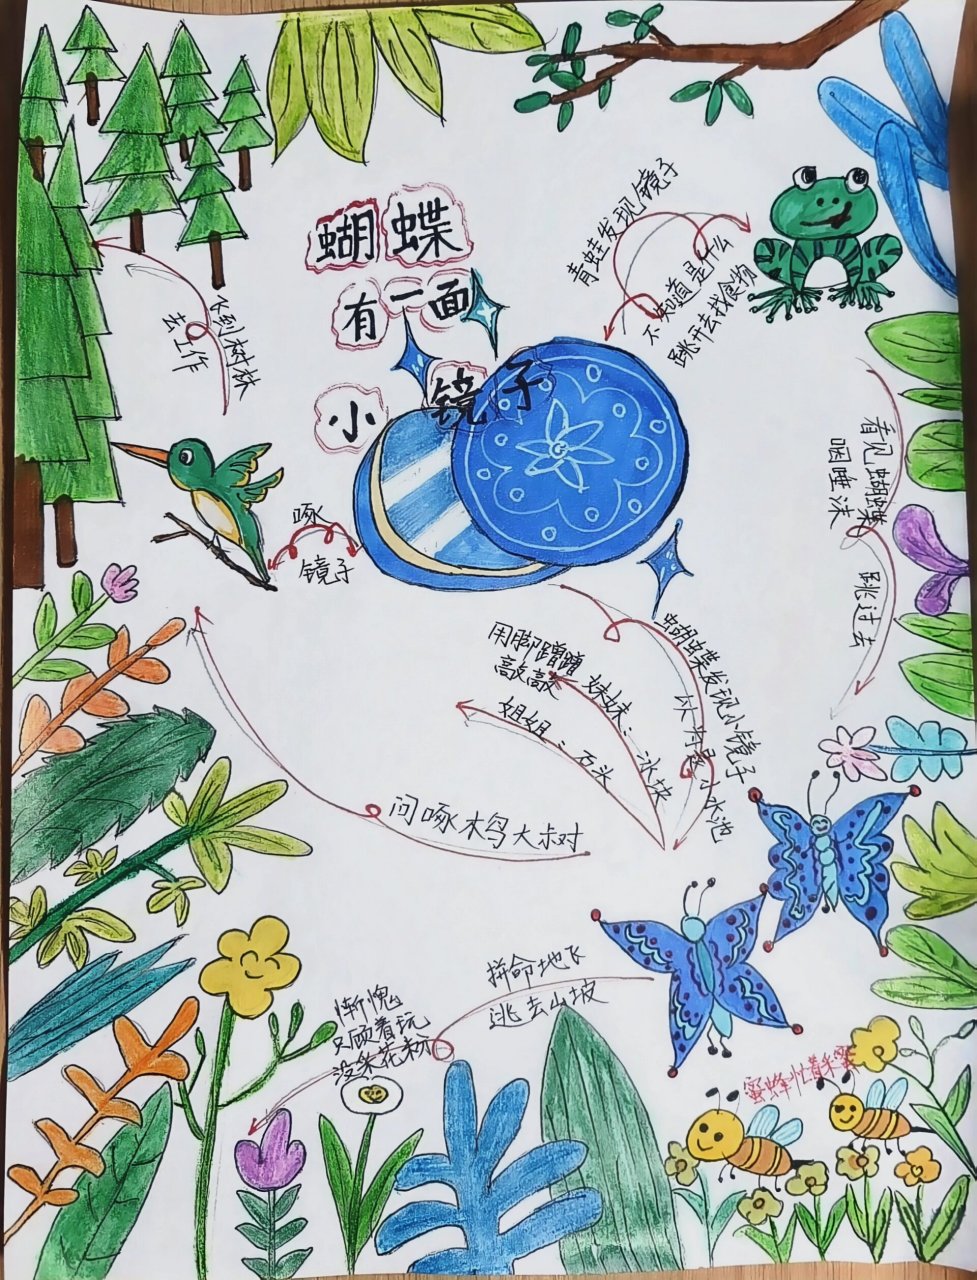 蝴蝶
有一面
小镜子
青蛙发现镜子
不知道是什么
跳开去找食物
飞到树林
去工作
啄
镜子
看见蝴蝶
咽唾沫
跳过去
蝴蝶发现小镜子
以为是小水池
用脚蹭蹭
高高
妹妹：冰块
姐姐：石头
问啄木鸟大叔对
拼命地飞
逃去山坡
惭愧
只顾着玩
没采花粉
蜜蜂忙着采蜜